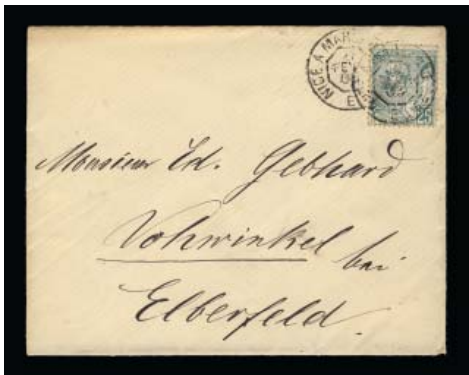 NICE A MAR
25
Monsieur Ed. Gebhard
Vohwinkel bei
Elberfeld.